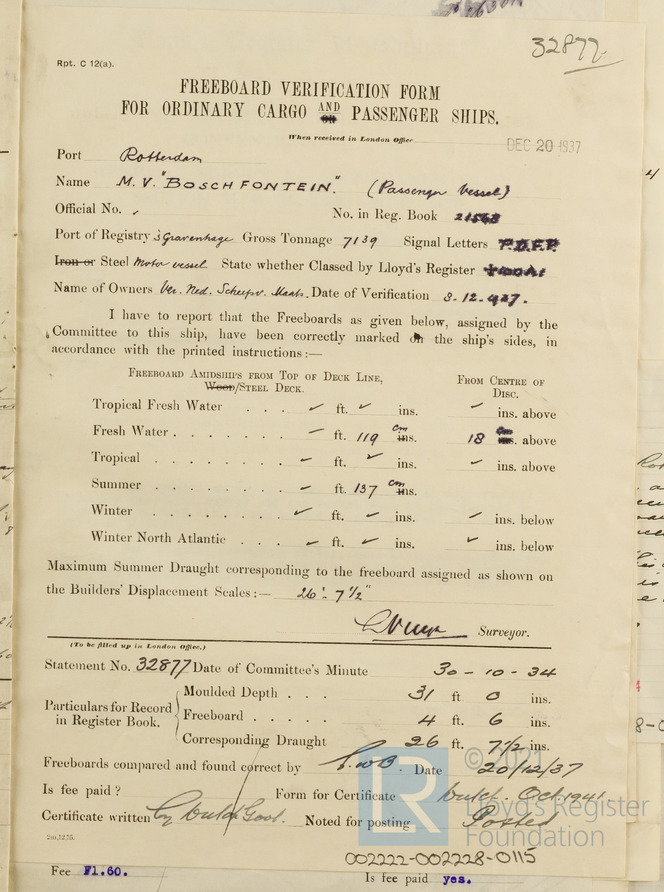 32877.
Rpt. C 12(a).
FREEBOARD VERIFICATION FORM
FOR ORDINARY CARGO AND PASSENGER SHIPS.
When received in London Office
DEC 20 1937
Port Rotterdam
Name M.V. "BOSCHFONTEIN". (Passenger Vessel)
Official No. No. in Reg. Book 21568
Port of Registry 's Gravenhage Gross Tonnage 7139 Signal Letters P.D.F.P.
Iron or Steel Motor vessel State whether Classed by Lloyd's Register
Name of Owners Ver. Ned. Scheepv. Maats. Date of Verification 8.12.937.
I have to report that the Freeboards as given below, assigned by the
Committee to this ship, have been correctly marked on the ship's sides, in
accordance with the printed instructions:—
FREEBOARD AMIDSHIPS FROM TOP OF DECK LINE, FROM CENTRE OF
WOOD/STEEL DECK. DISC.
Tropical Fresh Water . . . ✓ ft. ✓ ins. ✓ ins. above
Fresh Water . . . . . . . – ft. 119 cm ins. 18 cm ins. above
Tropical . . . . . . . . – ft. ✓ ins. ✓ ins. above
Summer . . . . . . . – ft. 137 cm ins.
Winter . . . . . . . . ✓ ft. ✓ ins. ✓ ins. below
Winter North Atlantic . . . ✓ ft. ✓ ins. ✓ ins. below
Maximum Summer Draught corresponding to the freeboard assigned as shown on
the Builders' Displacement Scales:— 26'- 7½"
Surveyor.
(To be filled up in London Office.)
Statement No. 32877 Date of Committee's Minute 30-10-34
Particulars for Record in Register Book.
Moulded Depth . . . 31 ft 0 ins.
Freeboard . . . . . 4 ft. 6 ins.
Corresponding Draught 26 ft. 7½ ins.
Freeboards compared and found correct by Date 20/12/37
Is fee paid? Form for Certificate Dutch. Oct 1941
Certificate written by Dutch Govt. Noted for posting Posted
2m,12.35.
© 2021
LR
Lloyd's Register
Foundation
002222-002228-0115
Fee Fl.60. Is fee paid yes.